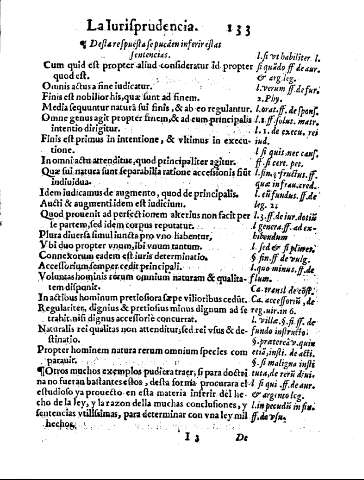 La Iurisprudencia. 133
¶ Desta respuesta se pueden inferir estas
sentencias.
Cum quid est propter aliud consideratur id propter
quod est.
Omnis actus a fine iudicatur.
Finis est nobilior his, quæ sunt ad finem.
Media sequuntur naturã sui finis, & ab eo regulantur.
Omne genus agit propter finem, & ad eum principalis
intentio dirigitur.
Finis est primus in intentione, & vltimus in execu-
tione.
In omni actu attenditur, quod principaliter agitur.
Quæ sui natura sunt separabilia ratione accessionis fiũt
indiuidua.
Idem iudicamus de augmento, quod de principali.
Aucti & augmenti idem est iudicium.
Quod prouenit ad perfectionem alterius non facit per
se partem, sed idem corpus reputatur.
Plura diuersa simul iuncta pro vno habentur.
Y bi duo propter vnum, ibi vnum tantum.
Connexorum eadem est iuris determinatio.
Accessorium semper cedit principali.
Voluntas hominis rerum omnium naturam & qualita-
tem disponit.
In actibus hominum pretiosiora sæpe vilioribus cedũt.
Regulariter, dignius & pretiosius minus dignum ad se
trahit. nisi dignus accessoriè concurrat.
Naturalis rei qualitas non attenditur, sed rei vsus & de-
stinatio.
Propter hominem natura rerum omnium species com
parauit.
¶ Otros muchos exemplos pudiera traer, si para doctri
na no fueran bastantes estos, desta forma procurara el
estudioso ya prouecto en esta materia inferir del he-
cho de la ley, y la razon della muchas conclusiones, y
sentencias vtilissimas, para determinar con vna ley mil
hechos.
l. si vt habiliter l.
si quãdo ff. de aur.
& arg. leg.
l. verum ff. de fur.
2. Phy.
l. orat. ff. de spons.
l. ff. solut. matr.
l. 1. de execu. rei
iud.
l. si quis nec caus.
ff. si cert. pet.
l. fin. § fructus. ff.
quæ in frau. cred.
l. eũ fundus. ff. de
leg. 21
l. 3. ff. de iur. dotiũ
l. genera. ff. ad ex-
hibendum
l. sed & si plures.
§ fin. ff. de vulg.
l. quo minus. ff. de
flum.
Ca. transl. de cõst.
Ca. accessoriũ, de
reg. iur. in 6.
l. villæ. § . si ff. de
fundo instructo.
§. præterea v. quin
etiã, insti. de acti.
§. si maligna insti
tuta, de rerũ diui.
l. si qui . ff. de aur.
& argento leg.
l. in pecudũ in fin.
ff. de vsu.
I 3 De